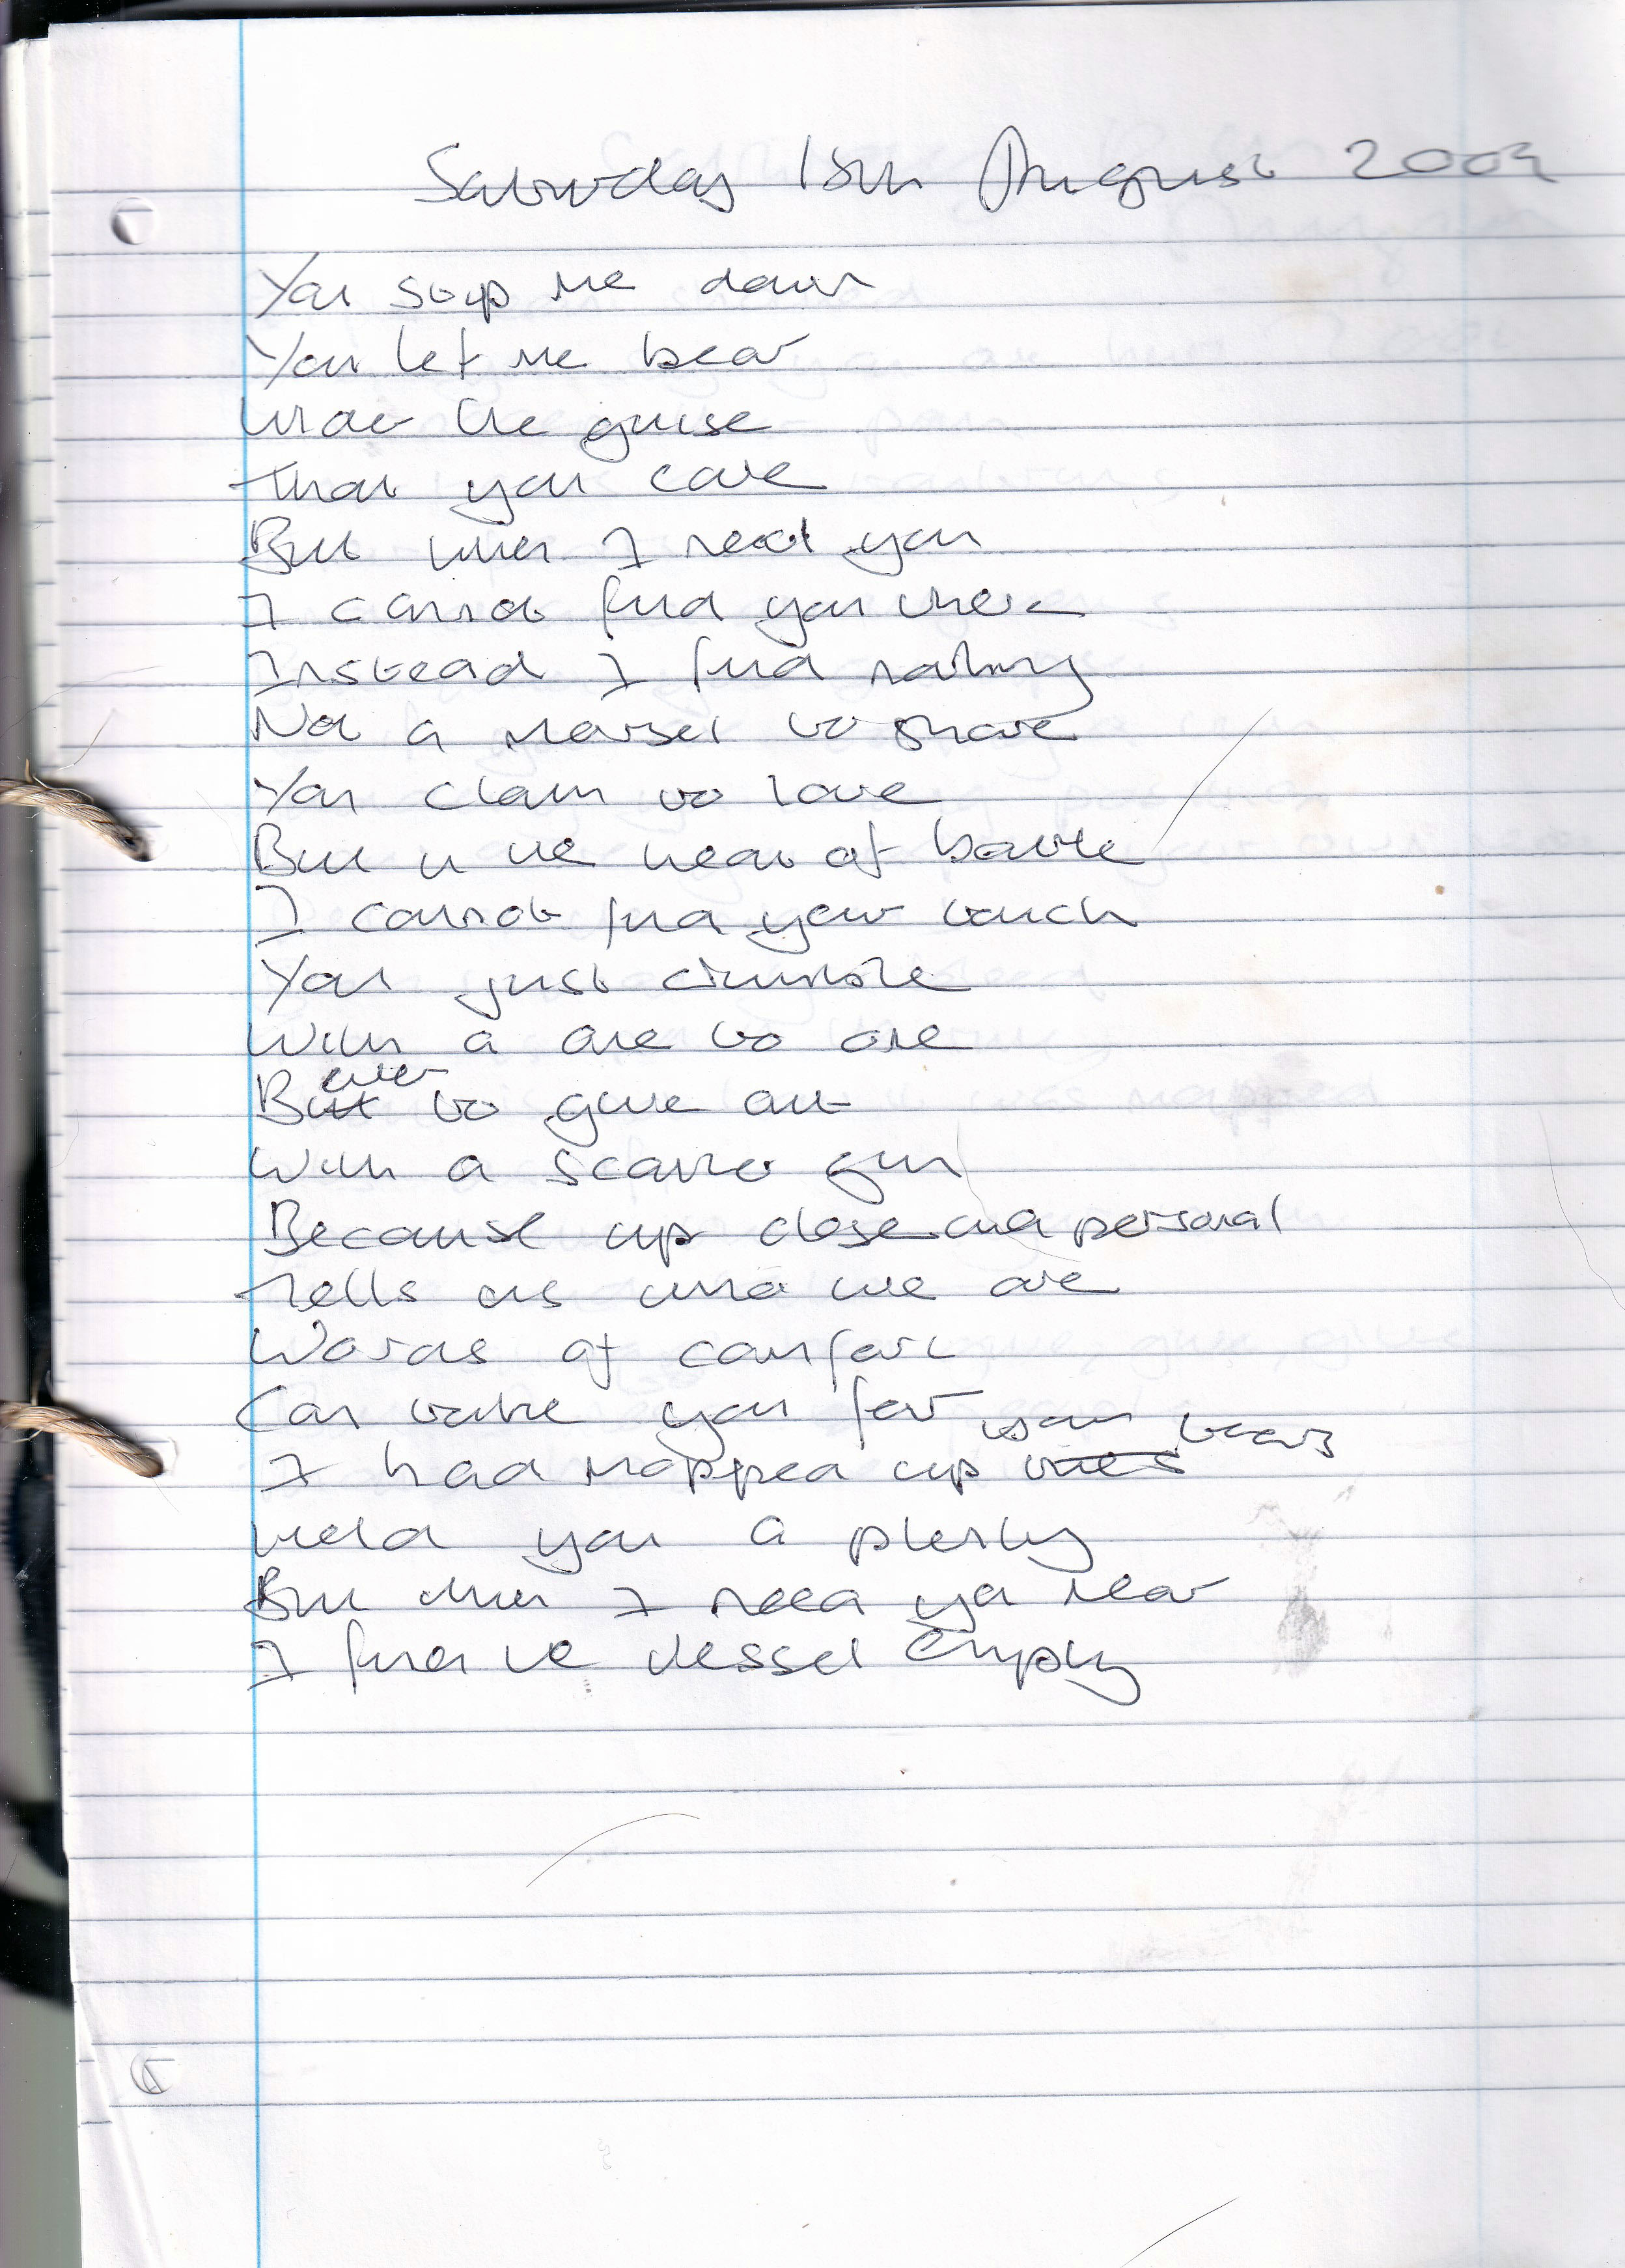 Saturday 15th August 2009
You strip me down
You let me bear
Under the guise
That you care
But when I need you
I cannot find you there
Instead I find nothing
Not a morsel to share
You claim to love
But in the heat of battle
I cannot find your touch
You just crumble
With a one to one
But ever to give out
With a scatter gun
Because up close and personal
Tells us who we are
Words of comfort
Can take you far
I had mopped up your tears
Held you a plenty
But when I need ya near
I find the vessel empty